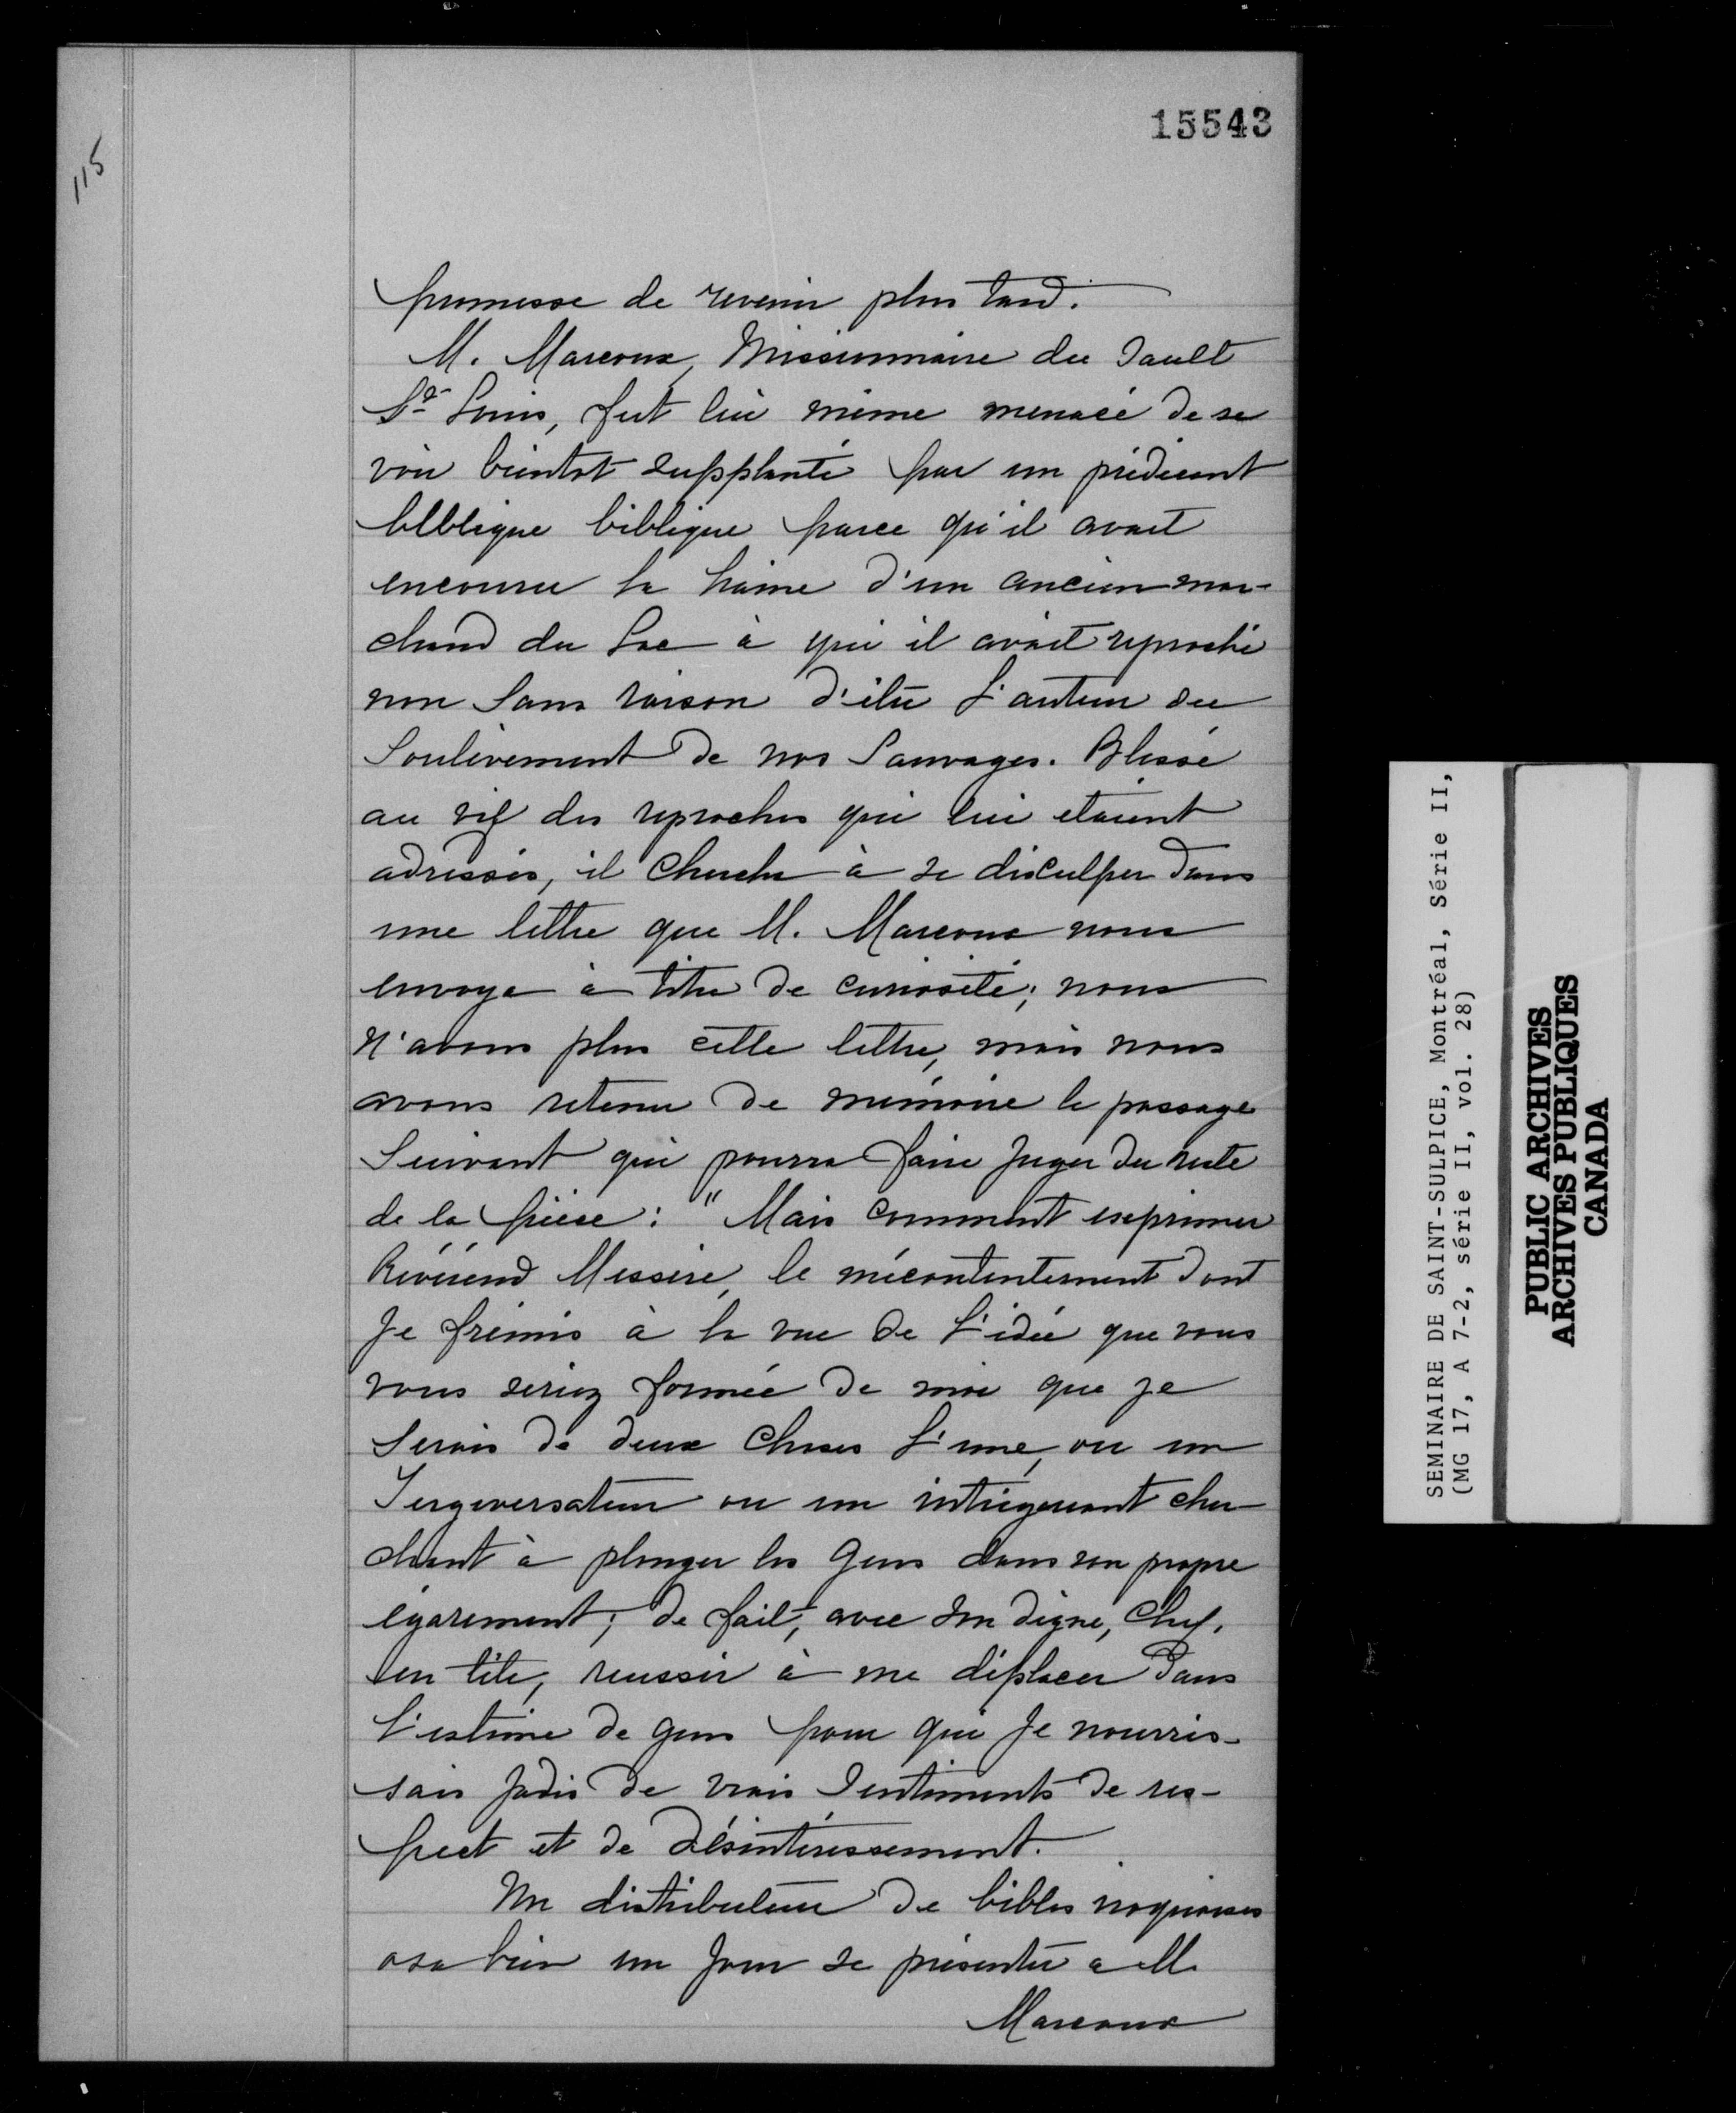 15543
115
promesse de revenir plus tard.
M. Marcoux, Missionnaire du Sault
St Louis, fut lui même menacé de se
voir bientot supplanté par un prédicant
biblique parce qu'il avait
encouru la haine d'un ancien mar-
chand du Lac à qui il avait reproché
non sans raison d'être l'auteur du
Soulèvement de nos Sauvages. Blessé
au vif des reproches qui lui etaient
adressés, il cherche à se disculper dans
une lettre que M. Marcoux nous
envoya à titre de curiosité; nous
n'avons plus cette lettre, mais nous
avons retenu de mémoire le passage
Suivant qui pourra faire juger du reste
de la pièce : "Mais comment exprimer
Révérend Messire, le mécontentement dont
Je frémis à la vue de l'idée que vous
vous seriez formée de moi que je
serais de deux choses l'une, ou un
Tergeversateur ou un intriguant cher
chant à plonger les gens dans son propre
égarement; de fait, avec son digne, Chef,
en tête, reussir à me déplacer dans
l'estime de gens pour qui Je nourris-
sais jadis de vrais Sentiments de res-
pect et de désintéressement.
Un distributeur de bibles iroquoises
osa bien un jour se présenter a M.
Marcoux
SEMINAIRE DE SAINT-SULPICE, Montréal, Série II,
(MG 17, A 7-2, série II, vol. 28)
PUBLIC ARCHIVES
ARCHIVES PUBLIQUES
CANADA